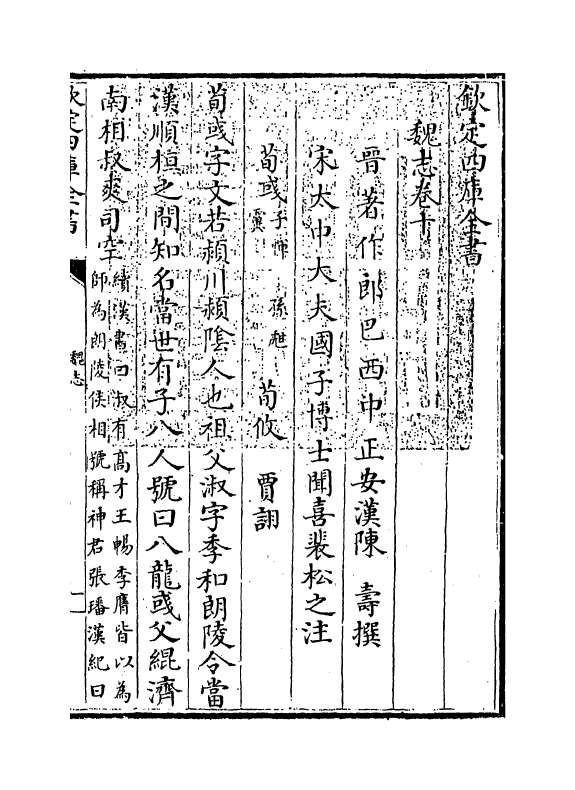 欽定四庫全書
魏志卷十
晋著作郎巴西中正安漢陳壽撰
宋太中大夫國子博士聞喜裴松之注
荀彧子惲 孫甝 荀攸 賈詡
荀彧字文若潁川潁陰人也祖父淑字季和朗陵令當
漢順桓之間知名當世有子八人號曰八龍彧父緄濟
南相叔爽司空續漢書曰淑有髙才王暢李膺皆以為
師為朗陵侯相號稱神君張璠漢紀曰
欽定四庫全書
魏志
一